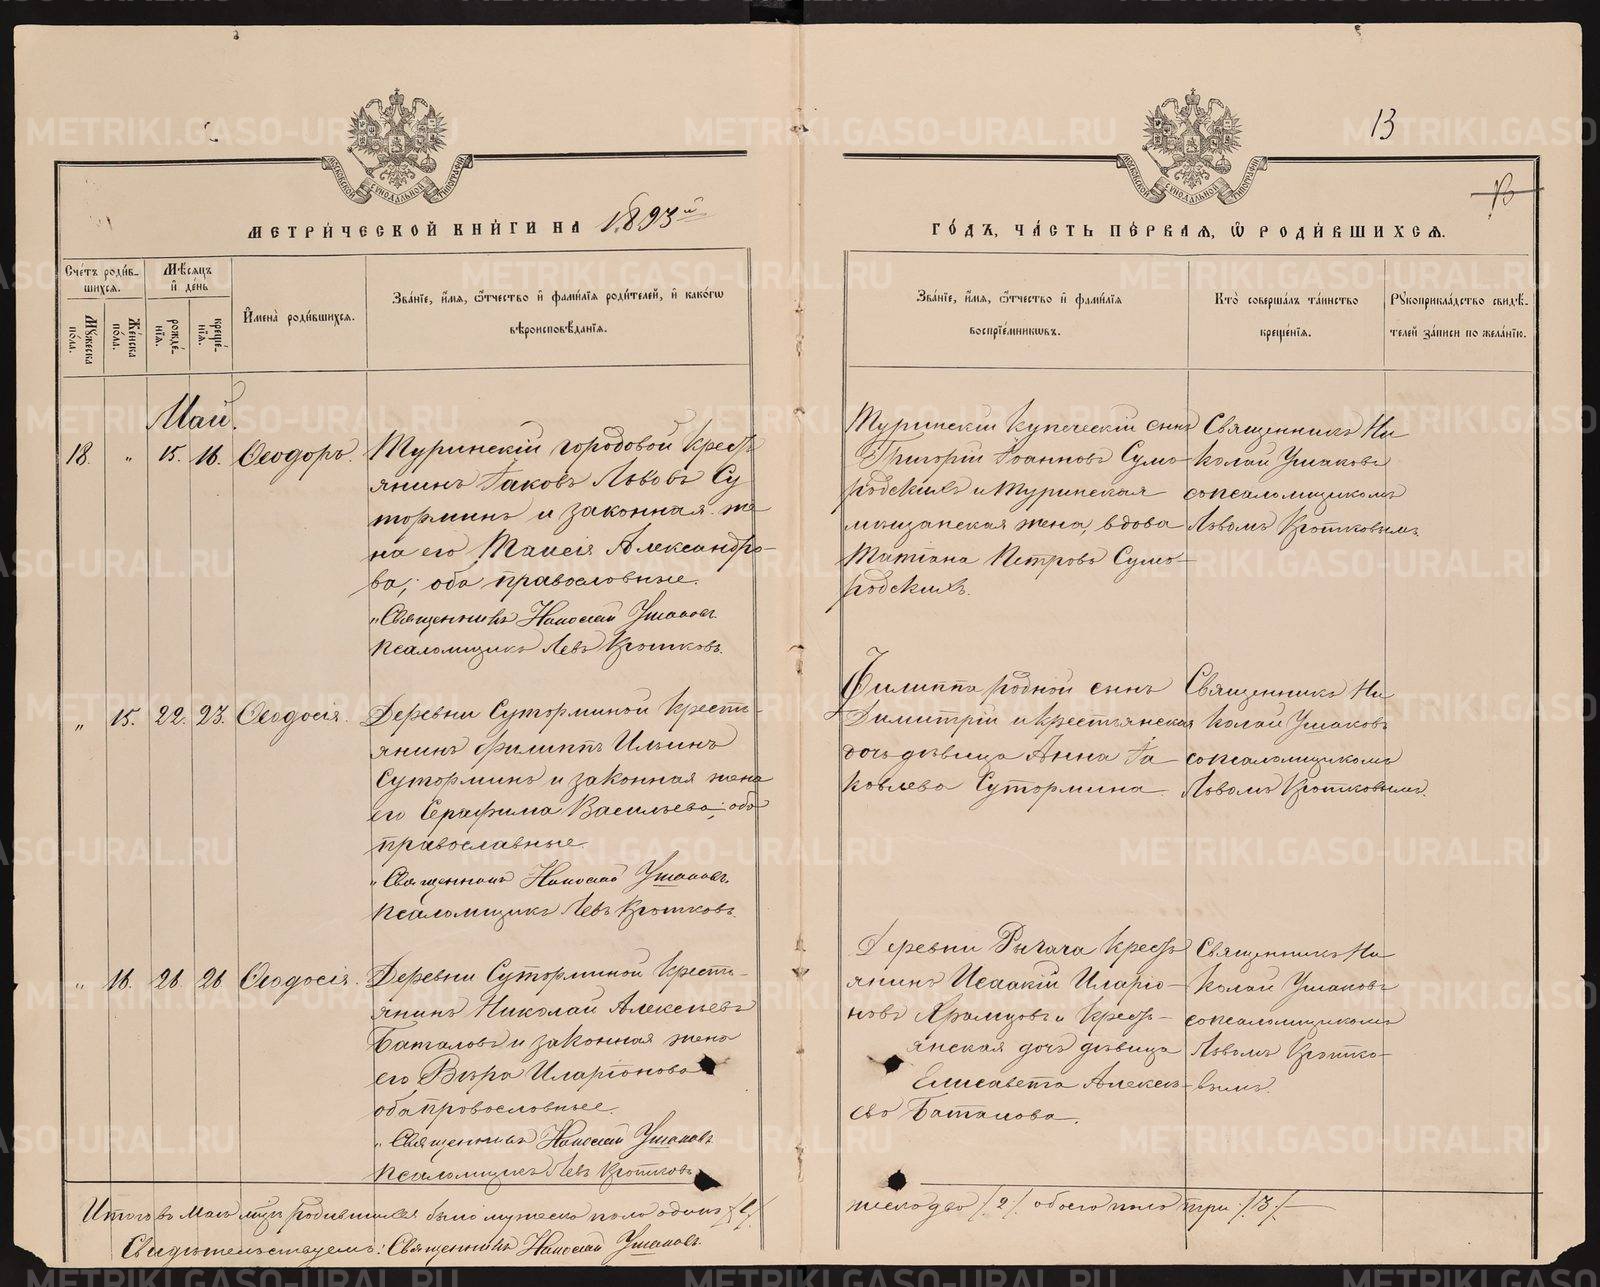 13
13
МЕТРИ́ЧЕСКОЙ КНИ́ГИ НА 1893й
ГО́ДЪ, ЧА́СТЬ ПЕ́РВАЯ, Ѡ РОДИ́ВШИХСЯ.
Сче́тъ роди́в-
шихся.
Мꙋ́жеска
по́ла.
Же́нска
по́ла.
Мѣ́сяцъ
и҆ де́нь
рожде́-
нїѧ.
креще́-
нїѧ.
И҆мена̀ роди́вшихся.
Зва́нїе, и҆́мя, ѻ҆́тчество и҆ фами́лїя роди́телей, и҆ како́гѡ
вѣроисповѣ́данїя.
Зва́нїе, и҆́мя, ѻ҆́тчество и҆ фами́лїя
воспрїе́мниковъ.
Кто̀ соверша́лъ та́инство
креще́нїя.
Рꙋкоприкла́дство свидѣ́-
телей за́писи по жела́нїю.
Май.
18. " 15. 16. Ѳеодоръ.
Туринскій городовой кресть
янинъ Іаковъ Львовъ Су
торминъ и законная же
на его Таисія Александро-
ва; оба православные.
"Священникъ Николай Ушаковъ.
Псаломщикъ Левъ Кротковъ.
Туринскій купеческій сынъ
Григорій Іоанновъ Сумо-
родскихъ и Туринская
мѣщанская жена, вдова
Татіана Петрова Сумо-
родскихъ.
Священникъ Ни
колай Ушаковъ
сопсаломщикомъ
Львомъ Кротковымъ.
" 15. 22. 23. Ѳеодосія.
Деревни Суторминой кресть-
янинъ Филиппъ Ильинъ
Суторминъ и законная жена
его Серафима Васильева; оба
православные.
"Священникъ Николай Ушаковъ.
Псаломщикъ Левъ Кротковъ.
Филиппа родной сынъ
Димитрій и крестьянская
дочь дѣвица Анна Іа-
ковлева Сутормина.
Священникъ Ни
колай Ушаковъ
сопсаломщикомъ
Львомъ Кротковымъ.
" 16. 26. 26. Ѳеодосія.
Деревни Суторминой кресть-
янинъ Николай Алексѣевъ
Баталовъ и законная жена
его Вѣра Иларіонова
оба православные.
"Священникъ Николай Ушаковъ
Псаломщикъ Левъ Кротковъ.
Деревни Рычача кресть
янинъ Исаакій Иларіо-
новъ Храмцовъ и кресть-
янская дочь дѣвица
Елисавета Алексѣ-
ева Баталова.
Священникъ Ни
колай Ушаковъ
сопсаломщикомъ
Львомъ Кротко-
вымъ.
Итого въ Маѣ м̃цѣ родившихся было мужеска пола одинъ /1/
женска два /2/ обоего пола три /3/
Свидѣтельствуемъ: Священникъ Николай Ушаковъ